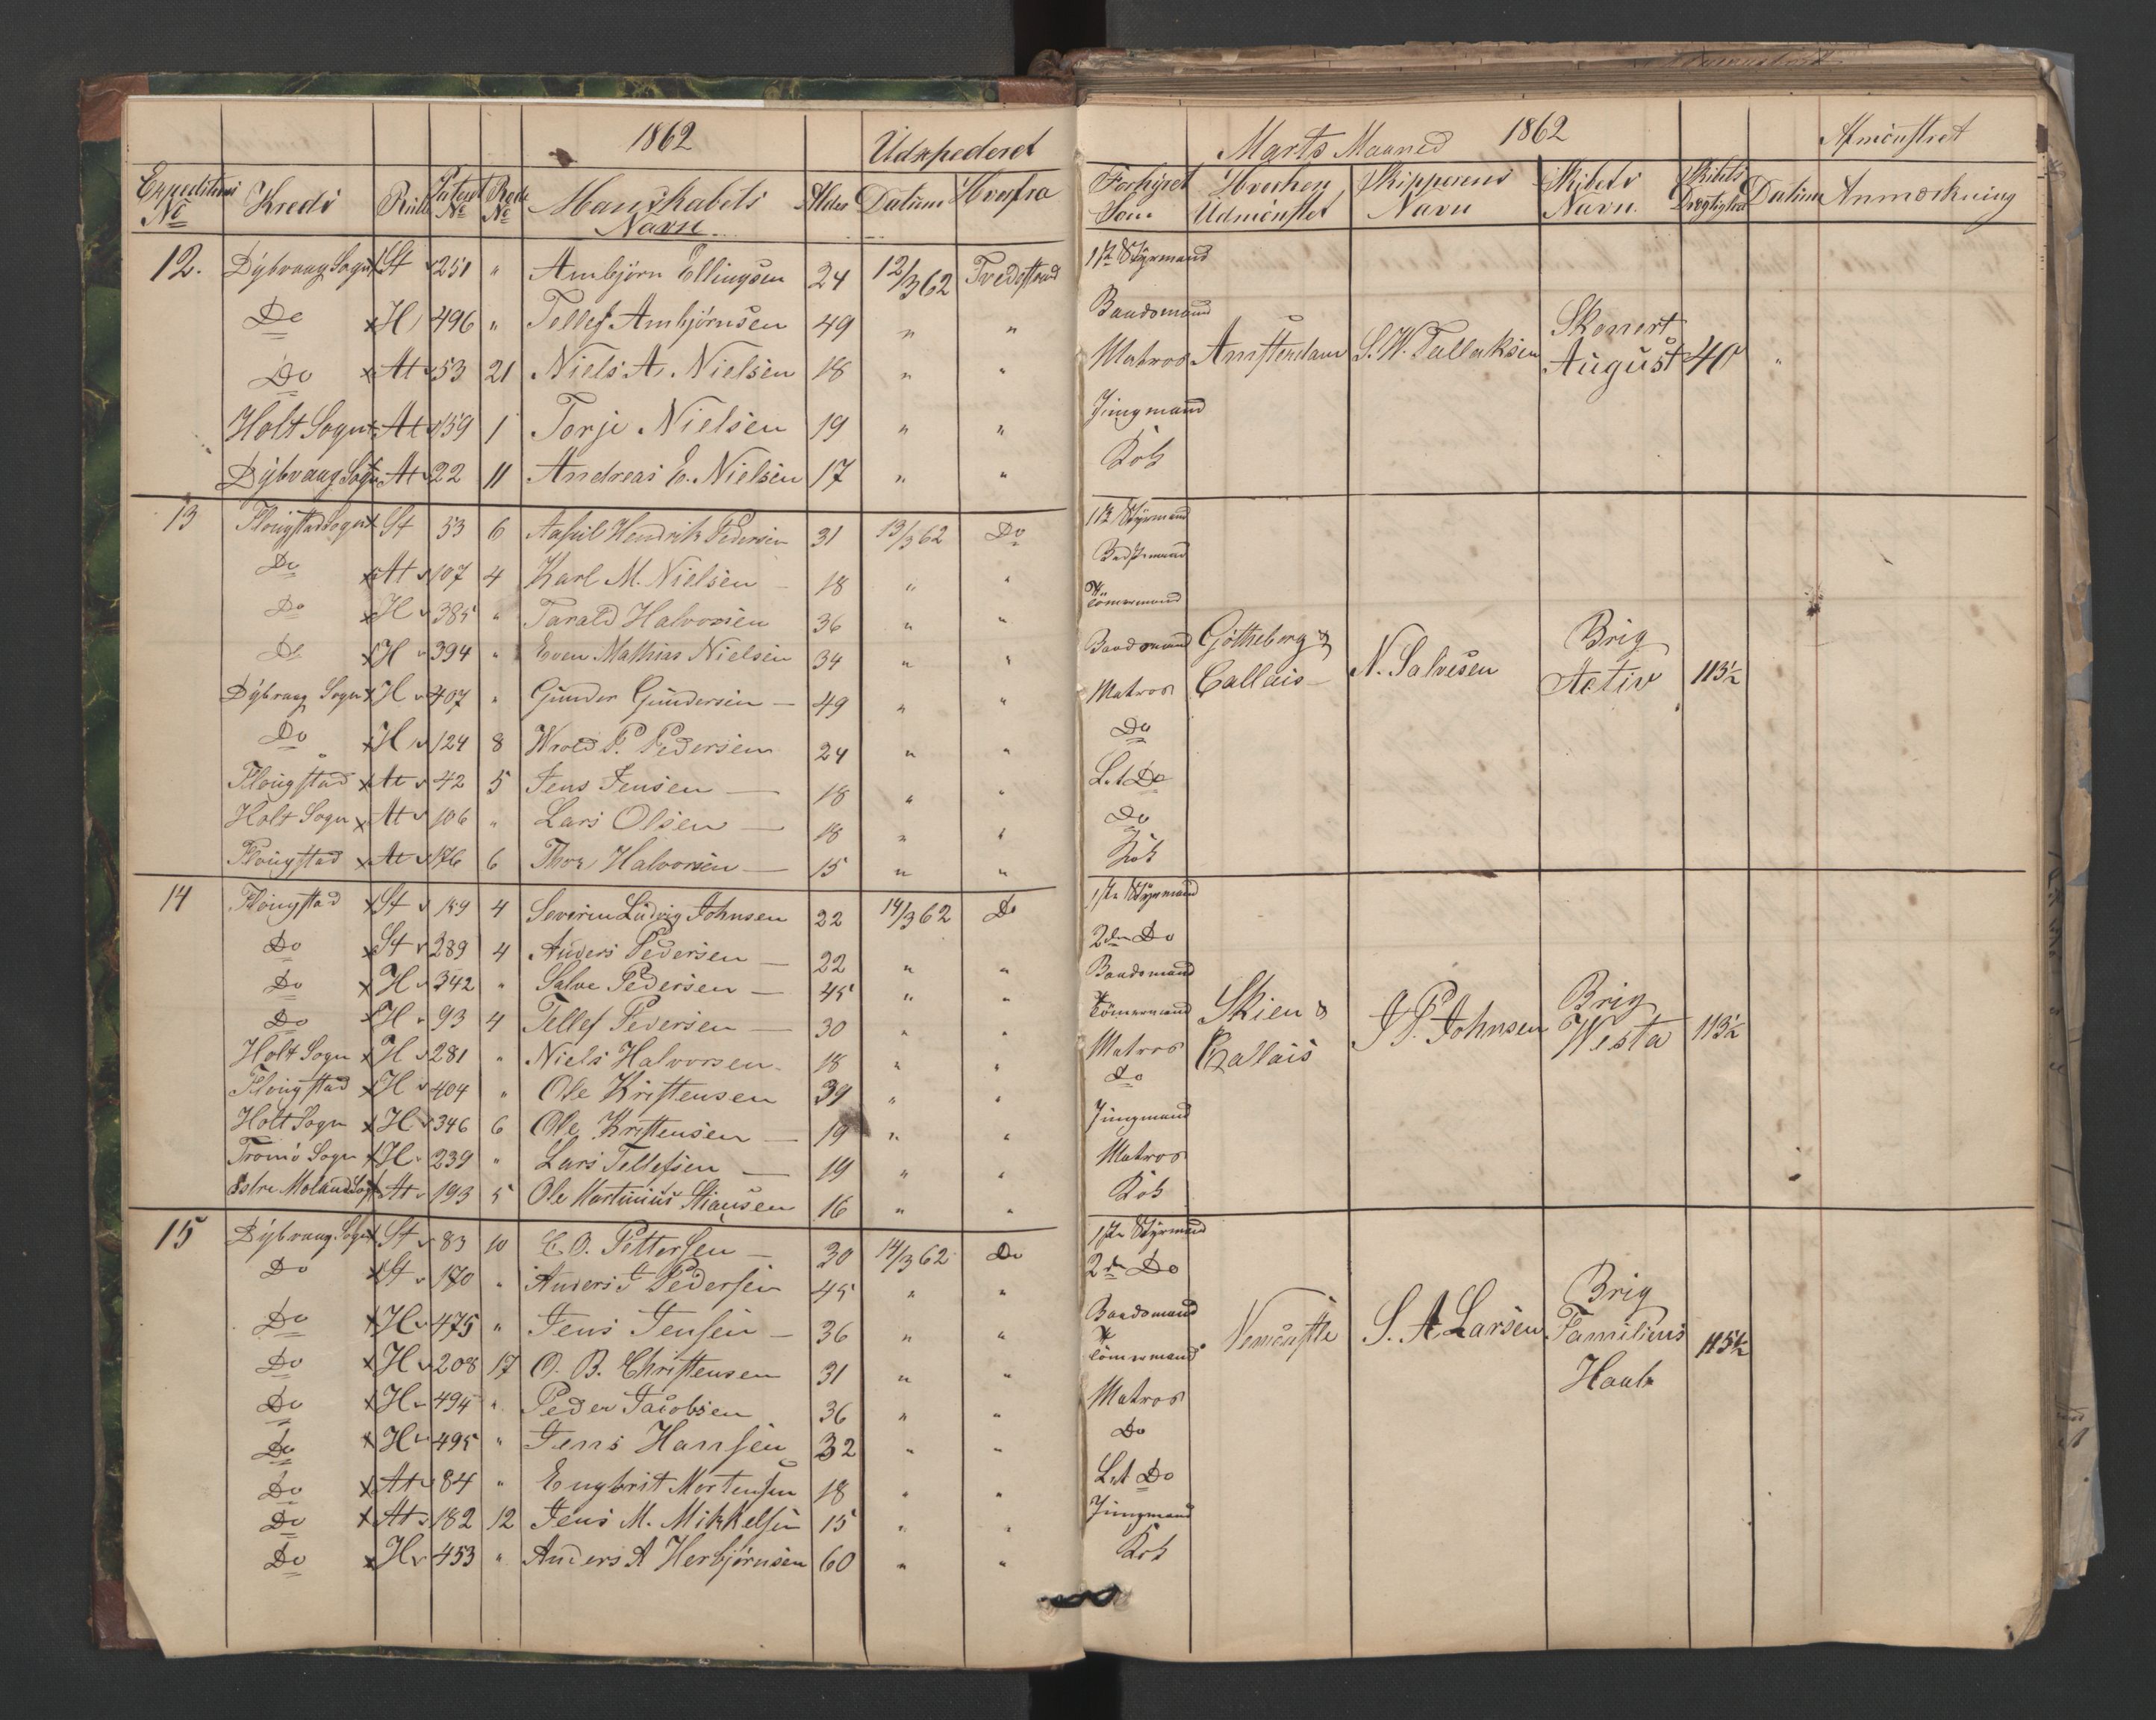 1862 Udxpederet
Expeditions No Kreds Rulle Patent No Rode No Mandskabets Navn Alder Datum Hvorfra
12. Dybvaag Sogn x St 251 " Ambjørn Ellingsen 24 12/3 62 Tvedestrand
Do x H 496 " Tellef Ambjørnsen 49 " "
Do x At 53 21 Niels A. Nielsen 18 " "
Holt Sogn x At 159 1 Torje Nielsen 19 " "
Dybvaag Sogn x At 22 11 Andreas E. Nielsen 17 " "
13 Flougstad Sogn x St 53 6 Hendrik Pedersen 31 13/3 62 Do
Do x At 107 4 Karl M. Nielsen — 18 " "
Do x H 385 " Tarald Halvorsen 36 " "
Do x H 394 " Even Mathias Nielsen 34 " "
Dybvaag Sogn x H 407 " Gunder Gundersen — 49 " "
Do x H 124 8 Wrold P. Pedersen 24 " "
Flougstad x At 42 5 Jens Jensen — 18 " "
Holt Sogn x At 106 " Lars Olsen — 18 " "
Flougstad x At 176 6 Thor Halvorsen — 15 " "
14 Flougstad x St 159 4 Severin Ludvig Johnsen 22 14/3 62 Do
Do x St 289 4 Anders Pedersen — 22 " "
Do x H 342 " Salve Pedersen — 45 " "
Do x H 93 4 Tellef Pedersen — 30 " "
Holt Sogn x H 281 " Niels Halvorsen. 18 " "
Flougstad x H 404 " Ole Kristensen 39 " "
Holt Sogn x H 346 6 Ole Kristensen — 19 " "
Tromö Sogn x H 239 " Lars Tellefsen — 19 " "
Østre Moland Sogn x At 193 5 Ole Martinius 16 " "
15 Dybvaag Sogn x St 83 10 E. O. Pettersen — 30 14/3 62 Do
Do x St 170 " Anders J Pedersen 45 " "
Do x H 475 " Jens Jensen — 36 " "
Do x H 208 17 O. B. Christensen 31 " "
Do x H 494 " Peder Jacobsen 36 " "
Do x H 495 " Jens Hansen 32 " "
Do x At 84 " Engbrit Mortensen 18 " "
Do x At 182 12 Jens M. Mikkelsen 15 " "
Do x H 453 " Anders A Herbjørnsen 60 " "
Marts Maaned 1862 Afmönstret
Forhyret Som Hvorhen Udmönstret Skipperens Navn Skibets Navn. Skibets Drægtighed Datum Anmærkning
1ste Styrmand
Baadsmand
Matros Amsterdam S. W. Tallaksen Skonnert August 40 "
Jungmand
Kok
1ste Styrmand
Bestmand
Tömermand
Baadsmand Götheborg & Callais — N. Salvesen Brig Activ 113½
Matros
Do
Let Do
Do
Kok
1ste Styrmand
2den Do
Baadsmand
Tömermand Skien & Callais J P. Johnsen Brig Westa 113½
Matros
Do
Jungmand
Matros
Kok
1ste Styrmand
2den Do
Baadsmand
Tömermand S. A. Larsen Brig Familiens Haab 115½
Matros
Do
Let Do
Jungmand
Kok